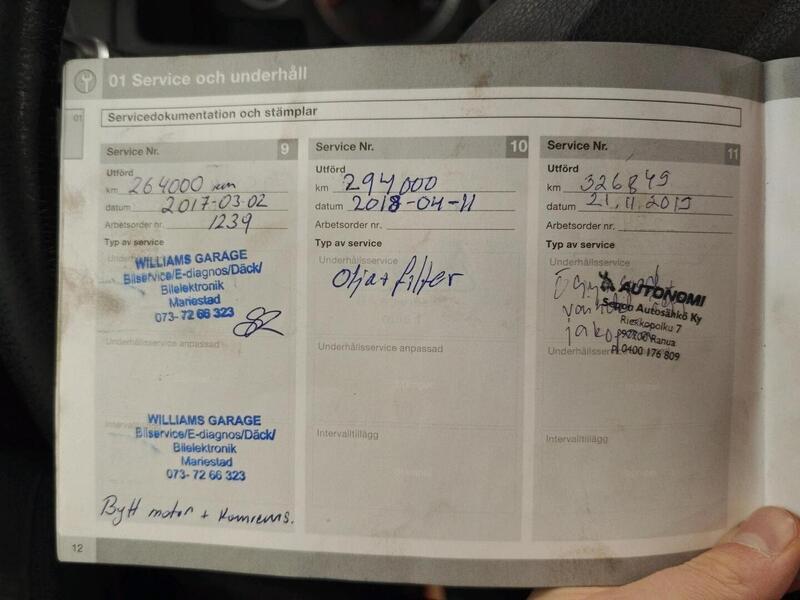 01 Service och underhåll
01
Servicedokumentation och stämplar
Service Nr. 9
Utförd
km 264000 km
datum 2017-03-02
Arbetsorder nr. 1239
Typ av service
WILLIAMS GARAGE
Bilservice/E-diagnos/Däck/
Bilelektronik
Mariestad
073- 72 66 323
Underhållsservice anpassad
WILLIAMS GARAGE
Bilservice/E-diagnos/Däck/
Bilelektronik
Mariestad
073- 72 66 323
Bytt motor + kamrems.
12
Service Nr. 10
Utförd
km 294000
datum 2018-04-11
Arbetsorder nr.
Typ av service
Underhållsservice
Olja + filter
Underhållsservice anpassad
Intervalltillägg
Service Nr. 11
Utförd
km 326849
datum 21.11.2019
Arbetsorder nr.
Typ av service
Underhållsservice
AUTONOMI
Autosähkö Ky
Rieskopolku 7
Ranua
0400 176 809
Underhållsservice
Intervalltillägg